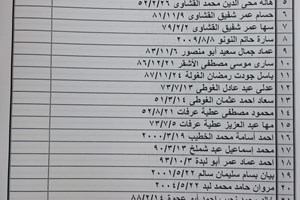 هالة محي الدين محمد القشاوي ٥٢/٢/٢٦ ٥
حسام عمر شفيق القشاوي ٨١/١١/٩ ٦
سها عمر شفيق القشاوي ٧٩/٢/٢ ٧
سارة حاتم النونو ٢٠٠٩/٨/٨ ٨
عماد جمال سعيد أبو منصور ٨٣/١١/٦ ٩
ساري موسى مصطفى الأشقر ٨٦/١٢/١ ١٠
باسل جودت رمضان الغولة ٨٧/١١/٢٤ ١١
عدلي عبد عادل الغوطي ٧٣/٧/١ ١٢
سعاد احمد عثمان الغوطي ٥١/٣/١٤ ١٣
محمود مصطفى عطية عرفات ٥٢/٨/٢١ ١٤
مها عبد العزيز عطية عرفات ٧٣/٧/٥ ١٥
احمد أسامة محمد الخطيب ٢٠٠٠/٣/١٩ ١٦
محمد إسماعيل عيد شملخ ٩٠/٣/١٣ ١٧
احمد عماد عمر أبو لبدة ٩٣/١٠/٣ ١٨
بيان بسام سليمان سالم ٢٠٠١/٥ ١٩
مروان حامد محمد لبد ٢٠٠٤/٥/٢٢ ٢٠
احمد أبو عجوة ٨٨/٢/١٤